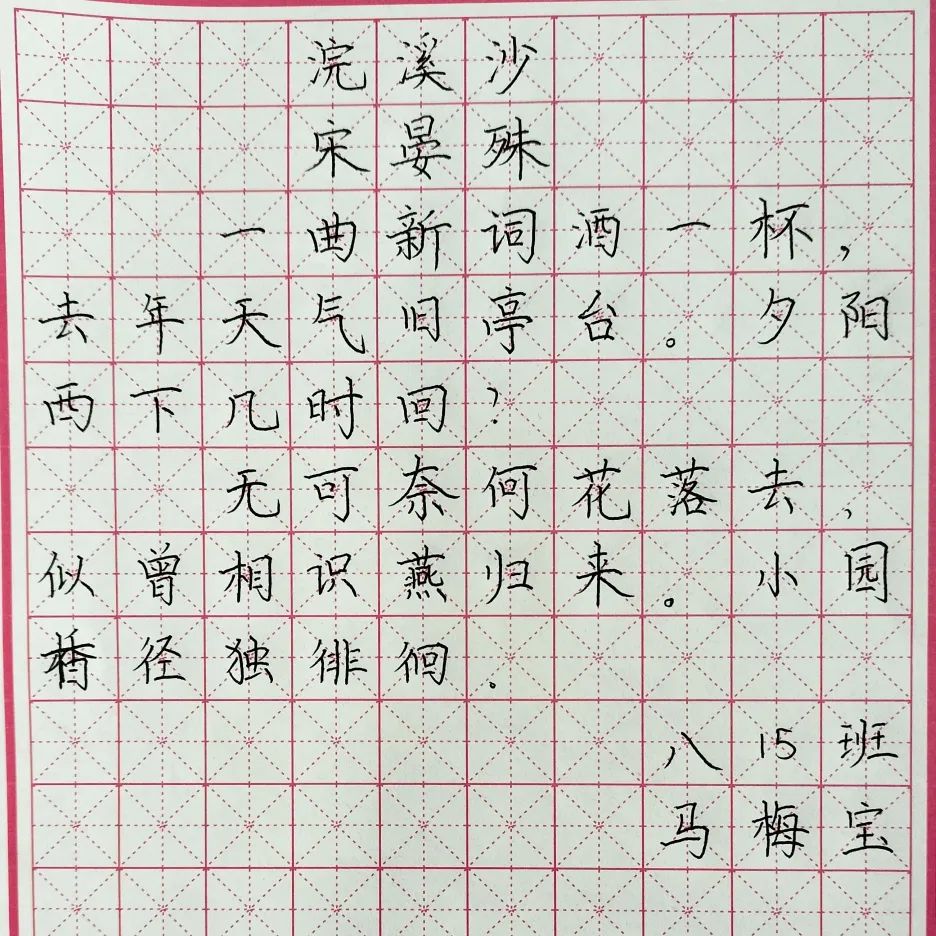 浣溪沙
宋晏殊
一曲新词酒一杯,
去年天气旧亭台。夕阳
西下几时回?
无可奈何花落去,
似曾相识燕归来。小园
香径独徘徊。
八15班
马梅宝